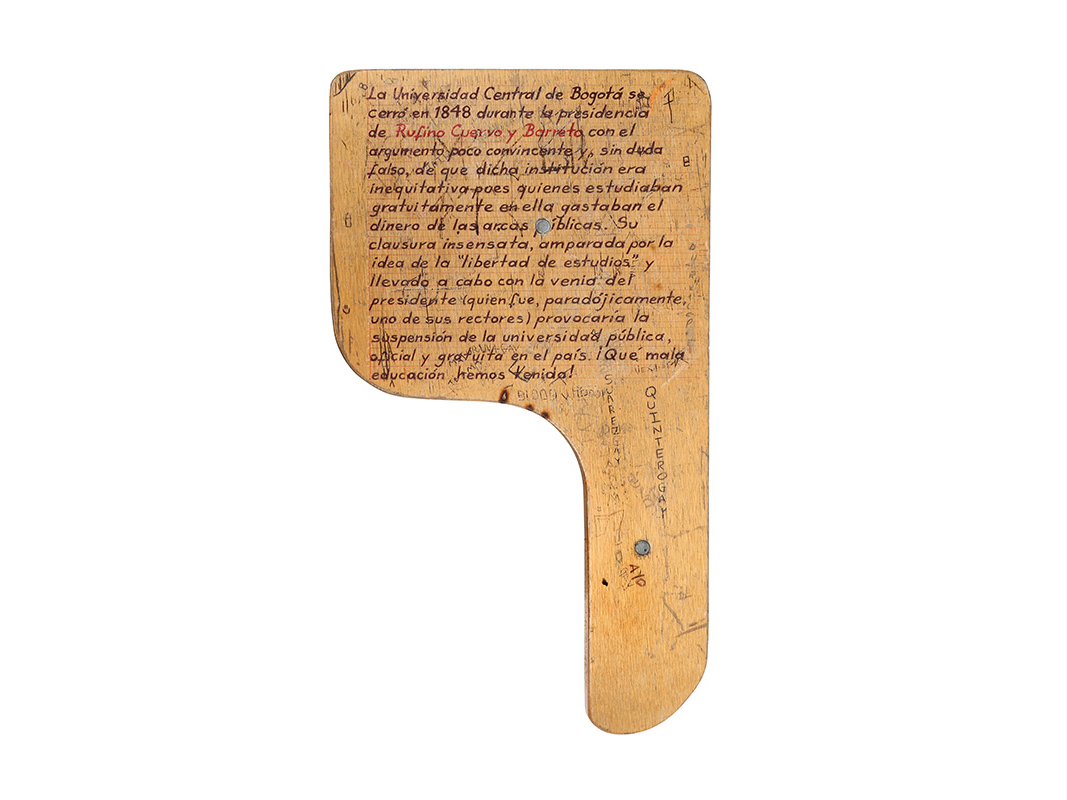 La Universidad Central de Bogotá se
cerró en 1848 durante la presidencia
de Rufino Cuervo y Barreto con el
argumento poco convincente y, sin duda
falso, de que dicha institución era
inequitativa pues quienes estudiaban
gratuitamente en ella gastaban el
dinero de las arcas públicas. Su
clausura insensata, amparada por la
idea de la "libertad de estudios" y
llevada a cabo con la venia del
presidente (quien fue, paradójicamente,
uno de sus rectores) provocaría la
suspensión de la universidad pública,
oficial y gratuita en el país. ¡Qué mala
educación hemos tenido!
BLOOD
QUINTERO GAY
A10